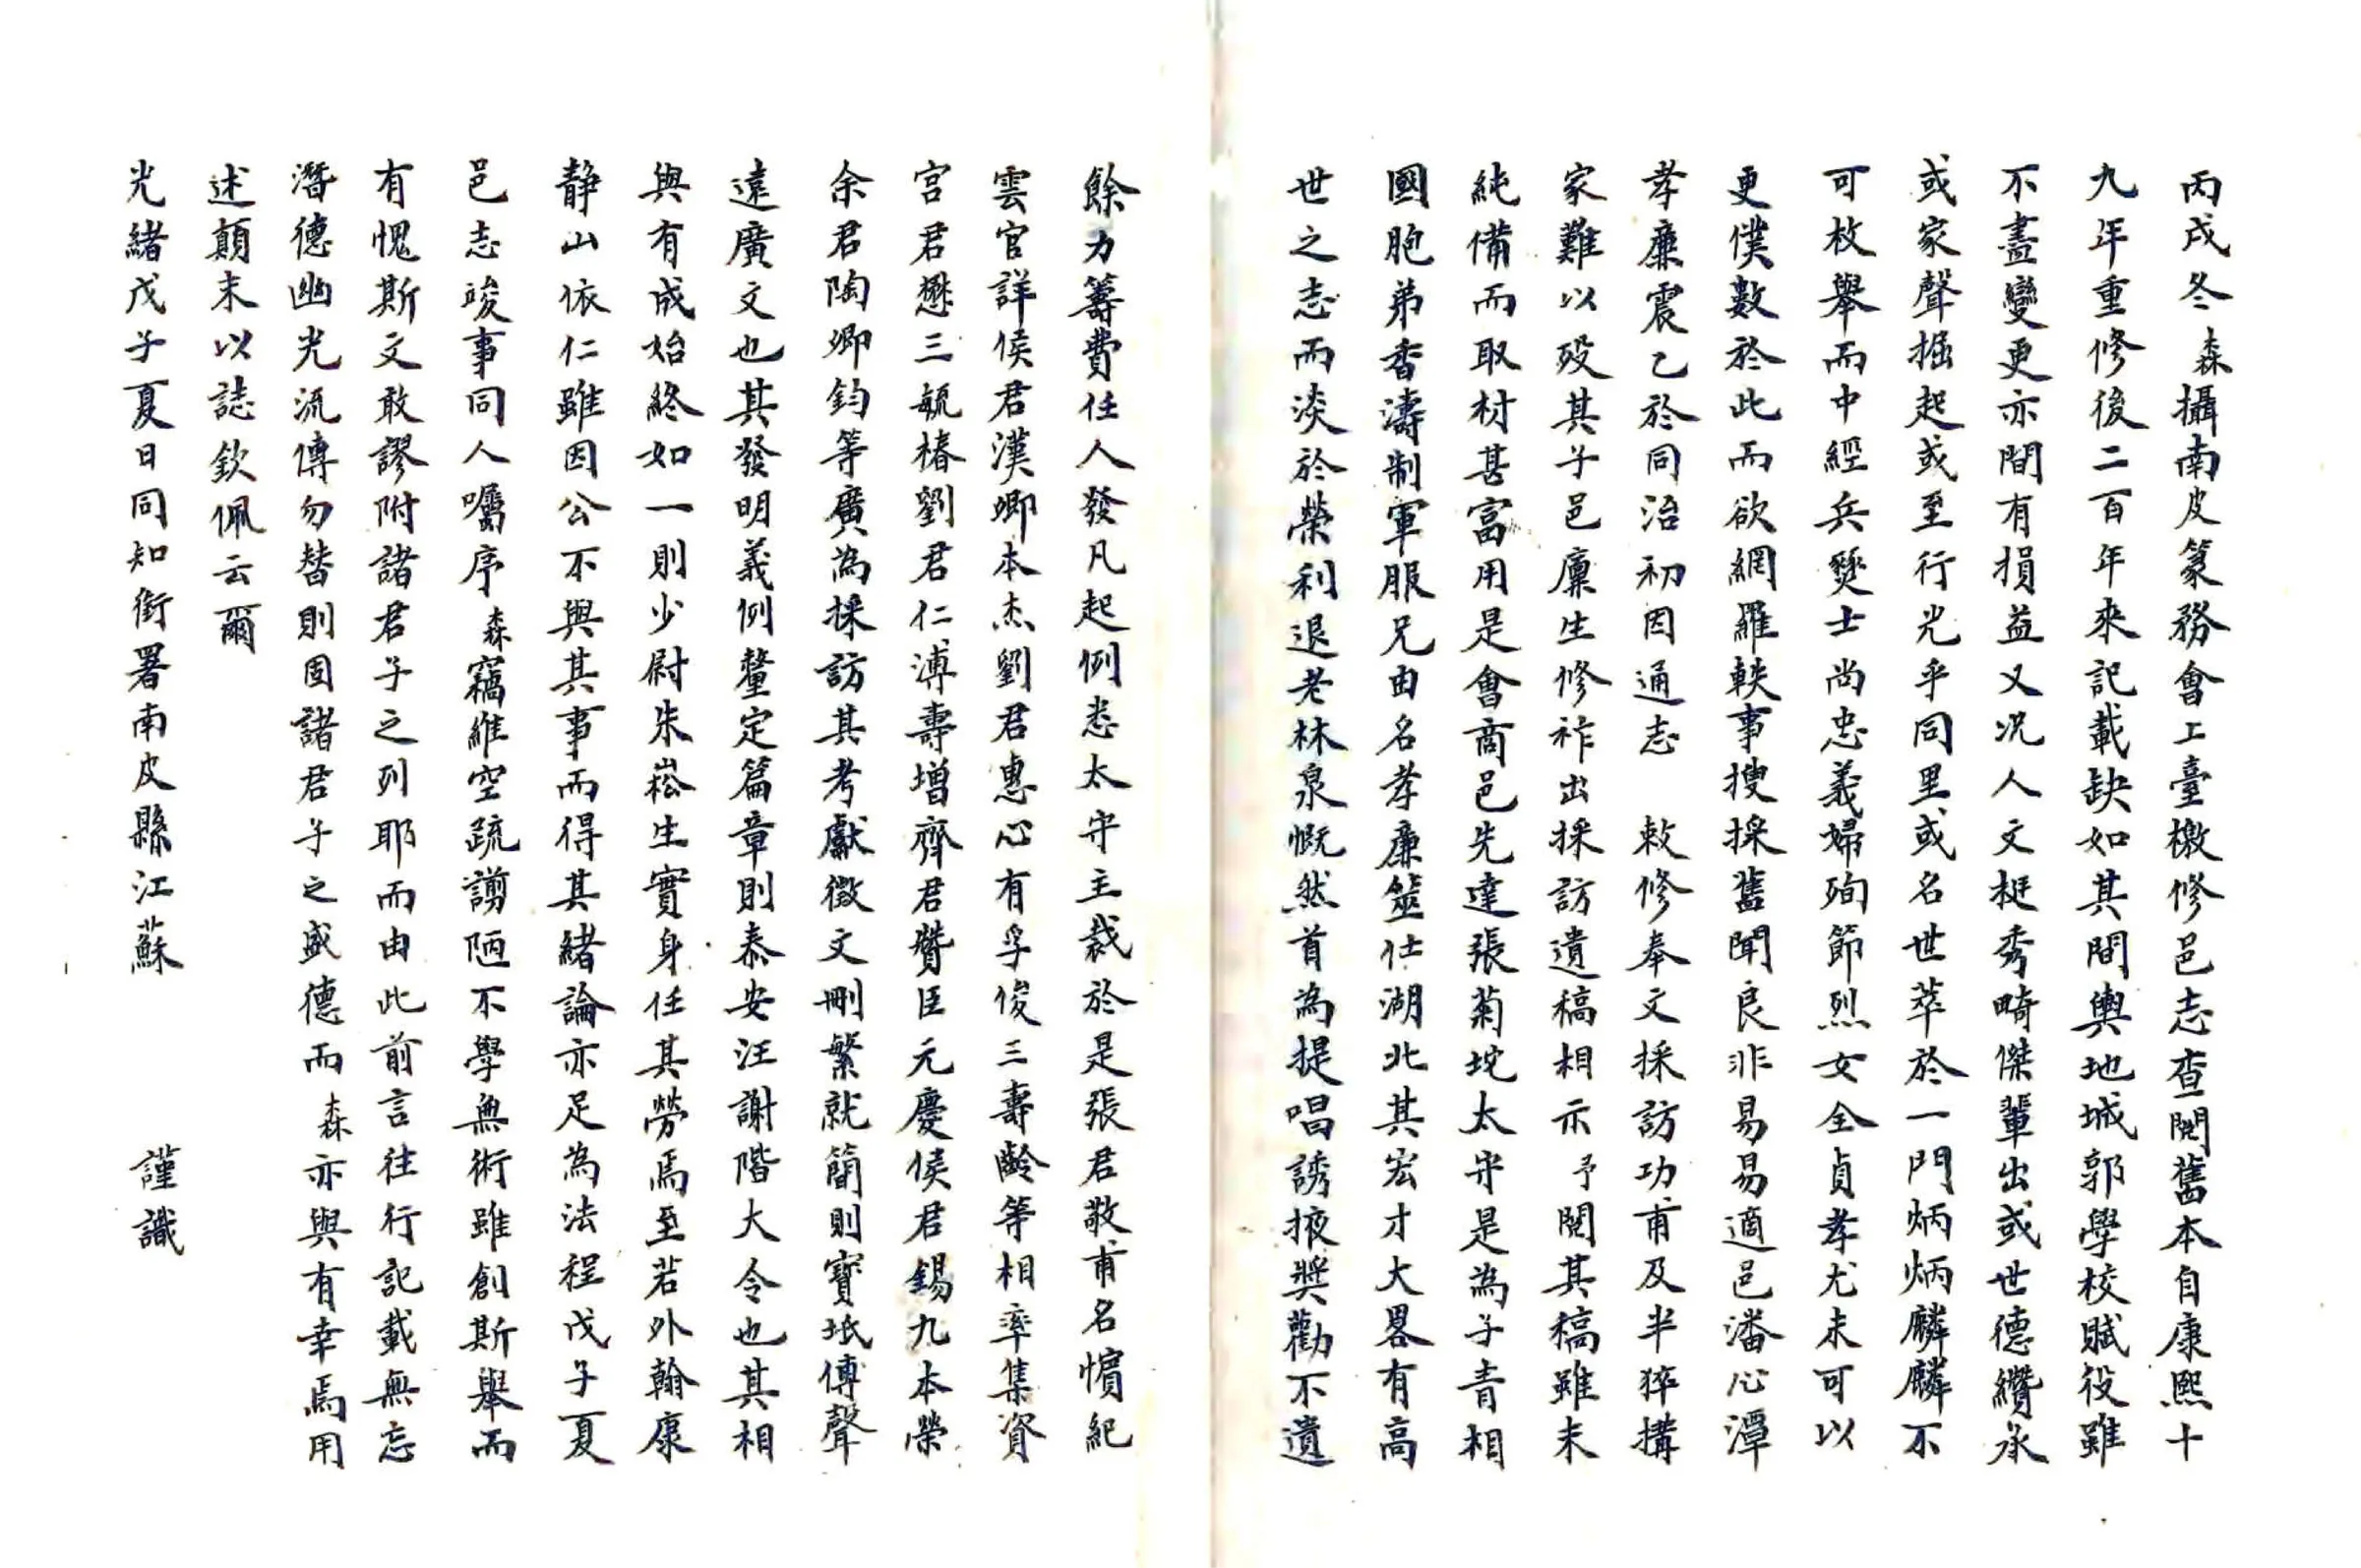 丙戌冬森攝南皮篆務會上臺檄修邑志查閱舊本自康熙十
九年重修後二百年來記載缺如其間輿地城郭學校賦役雖
不盡變更亦間有損益又况人文挺秀畸傑輩出或世德纘承
或家聲掘起或至行光乎同里或名世萃於一門炳炳麟麟不
可枚舉而中經兵燹士尚忠義婦殉節烈女全貞孝尤未可以
更僕數於此而欲網羅軼事搜採舊聞良非易易適邑潘心潭
孝廉震乙於同治初因通志敕修奉文採訪功甫及半猝搆
家難以歿其子邑廩生修祚出採訪遺稿相示予閱其稿雖未
純備而取材甚富用是會商邑先達張菊垞太守是為子青相
國胞弟香濤制軍服兄由名孝廉筮仕湖北其宏才大畧有高
世之志而淡於榮利退老林泉慨然首為提唱誘掖獎勸不遺
餘力籌費任人發凡起例悉太守主裁於是張君敬甫名懫紀
雲官詳侯君漢卿本杰劉君惠心有孚俊三壽齡等相率集資
宮君懋三毓椿劉君仁溥壽增齊君贊臣元慶侯君錫九本榮
余君陶卿鈞等廣為採訪其考獻徵文刪繁就簡則寶坻傅聲
遠廣文也其發明義例釐定篇章則泰安汪謝階大令也其相
與有成始終如一則少尉朱崧生實身任其勞焉至若外翰康
静山依仁雖因公不與其事而得其緒論亦足為法程戊子夏
邑志竣事同人囑序森竊維空疏謭陋不學無術雖創斯舉而
有愧斯文敢謬附諸君子之列耶而由此前言往行記載無忘
潛德幽光流傳勿替則固諸君子之盛德而森亦與有幸焉用
述顛末以誌欽佩云爾
光緒戊子夏日同知銜署南皮縣江蘇　謹識